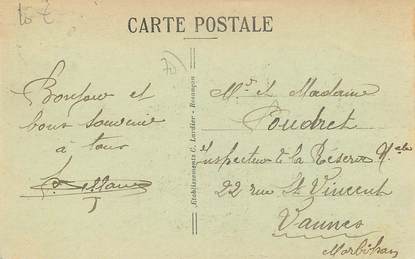 CARTE POSTALE
10 €
70
Bonjour et
bons souvenir
à tous
Établissements C. Lardier - Besançon
Mr et Madame
Poudret
Inspecteur de la Réserve Nale
22 rue St Vincent
Vannes
Morbihan